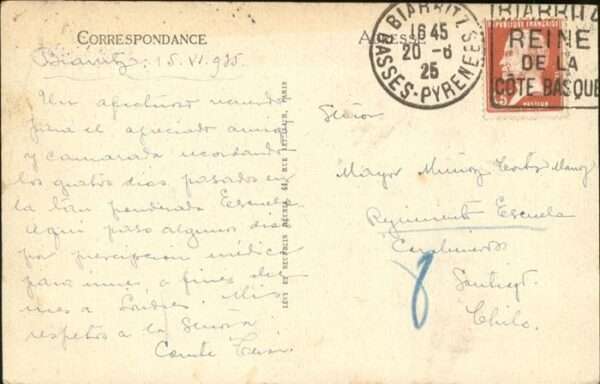 CORRESPONDANCE
Biarritz. 15. VI. 925.
Un afectuoso recuerdo
para el apreciado amigo
y camarada recordando
los gratos días pasados en
la bien ponderada Escuela
Aquí paso algunos días
por prescripción médica
para irme a fines del
mes a Londres. Mis
respetos a la Señora
LÉVY ET NEURDEIN RÉUNIS, 44, RUE LETELLIER, PARIS
BIARRITZ
16 45
20 - 6
25
BASSES-PYRENEES
BIARRITZ
REINE
DE LA
CÔTE BASQUE
PASTEUR
Señor
Mayor Muñoz
Regimiento Escuela
Carabineros
Santiago.
Chile.